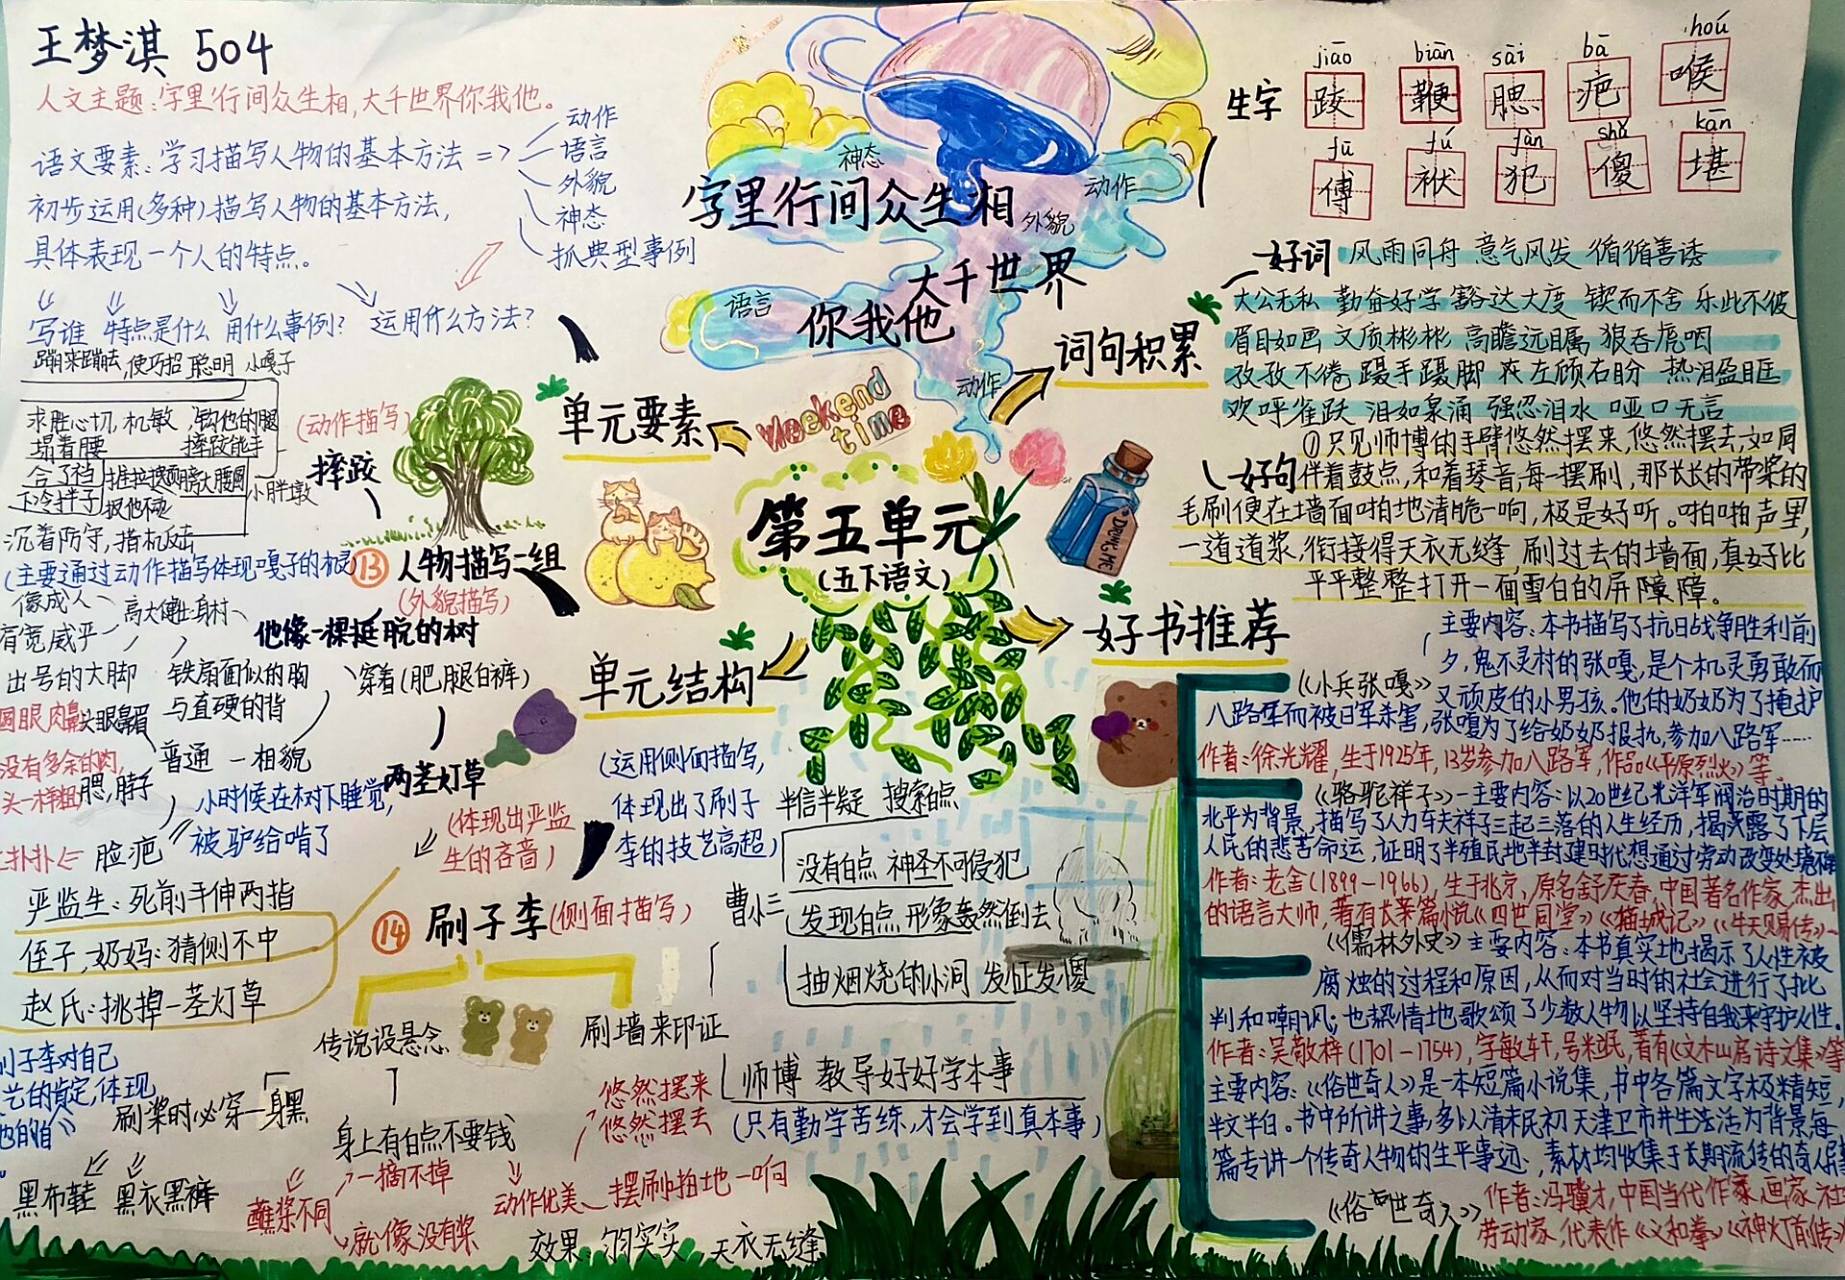 王梦淇 504
人文主题:字里行间众生相,大千世界你我他。
语文要素:学习描写人物的基本方法 =>
动作
语言
外貌
神态
抓典型事例
初步运用(多种)描写人物的基本方法,
具体表现一个人的特点。
写谁 特点是什么 用什么事例? 运用什么方法?
蹦来蹦去,使巧招 聪明 小嘎子
求胜心切,机敏,钩他的腿
塌着腰 摔跤能手
合了裆
下冷拌子
扳他不动
小胖墩
沉着防守,指机反击
(动作描写)
摔跤
(主要通过动作描写体现嘎子的机灵)
⑬ 人物描写一组
(外貌描写)
他像一棵挺脱的树
像成人
高大健壮身材
肩宽威乎
出号的大脚
铁扇面似的胸
与直硬的背
穿着(肥腿白裤)
圆眼肉鼻 头眼鼻眉
没有多余的肉,
头一样粗 腮,脖子
普通 — 相貌
小时候在树下睡觉,
被驴给啃了
脸疤
两茎灯草
(体现出严监
生的吝啬)
严监生:死前手伸两指
侄子,奶妈:猜测不中
赵氏:挑掉一茎灯草
神态
动作
外貌
语言
动作
字里行间众生相
大千世界
你我他
单元要素
weekend
time
词句积累
第五单元
(五下语文)
单元结构
好书推荐
DRINK ME
⑭ 刷子李(侧面描写)
(运用侧面描写,
体现出了刷子
李的技艺高超)
传说设悬念
刷墙来印证
刷子李对自己
艺的肯定,体现
刷浆时必穿一身黑
黑布鞋 黑衣黑裤
身上有白点不要钱
蘸浆不同
一滴不掉
就像没有浆
动作优美
悠然摆来
悠然摆去
摆刷拍地一响
效果 匀实实 天衣无缝
曹小三
半信半疑 搜索白点
没有白点 神圣不可侵犯
发现白点 形象轰然倒去
抽烟烧的小洞 发怔发傻
师傅 教导好好学本事
(只有勤学苦练,才会学到真本事)
生字
jiāo biān sāi bā hóu
跤 鞭 腮 疤 喉
fū fú fàn shǎ kān
傅 袱 犯 傻 堪
好词 风雨同舟 意气风发 循循善诱
大公无私 勤奋好学 豁达大度 锲而不舍 乐此不彼
眉目如画 文质彬彬 高瞻远瞩 狼吞虎咽
孜孜不倦 蹑手蹑脚 左顾右盼 热泪盈眶
欢呼雀跃 泪如泉涌 强忍泪水 哑口无言
好句
①只见师傅的手臂悠然摆来,悠然摆去,如同
伴着鼓点,和着琴音,每一摆刷,那长长的带浆的
毛刷便在墙面啪地清脆一响,极是好听。啪啪声里,
一道道浆,衔接得天衣无缝,刷过去的墙面,真好比
平平整整打开一面雪白的屏障障。
《小兵张嘎》
主要内容:本书描写了抗日战争胜利前
夕,鬼不灵村的张嘎,是个机灵勇敢而
又顽皮的小男孩。他的奶奶为了掩护
八路军而被日军杀害,张嘎为了给奶奶报仇,参加八路军……
作者:徐光耀,生于1925年,13岁参加八路军,作品《平原烈火》等。
《骆驼祥子》—主要内容:以20世纪北洋军阀治时期的
北平为背景,描写了人力车夫祥子三起三落的人生经历,揭露了下层
人民的悲苦命运,证明了半殖民地半封建时代想通过劳动改变处境
作者:老舍(1899—1966),生于北京,原名舒庆春,中国著名作家,杰出
的语言大师,著有长篇小说《四世同堂》《猫城记》《牛天赐传》
《儒林外史》主要内容:本书真实地揭示了人性被
腐蚀的过程和原因,从而对当时的社会进行了批
判和嘲讽;也热情地歌颂了少数人物以坚持自我来守护人性。
作者:吴敬梓(1701—1754),字敏轩,号粒民,著有《文木山房诗文集》等
主要内容:《俗世奇人》是一本短篇小说集,书中各篇文字极精短,
半文半白。书中所讲之事,多以清末民初天津卫市井生活为背景,每
篇专讲一个传奇人物的生平事迹,素材均收集于长期流传的奇人异
《俗世奇人》
作者:冯骥才,中国当代作家,画家,社
劳动家,代表作《义和拳》《神灯前传》